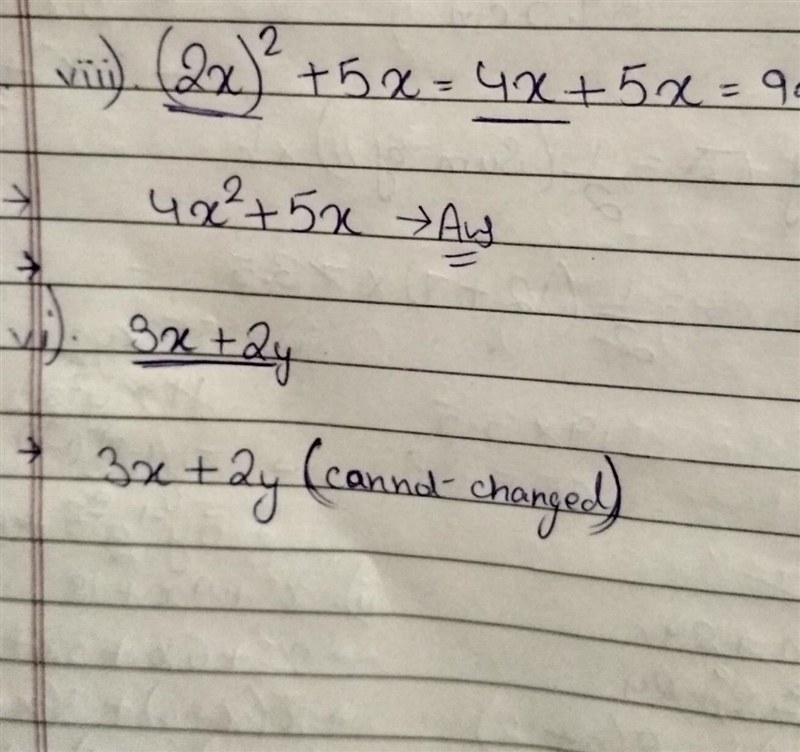 viii). (2x)² + 5x = 4x + 5x = 9
→ 4x² + 5x → Ans
→
vi). 3x + 2y
→ 3x + 2y (cannot changed)